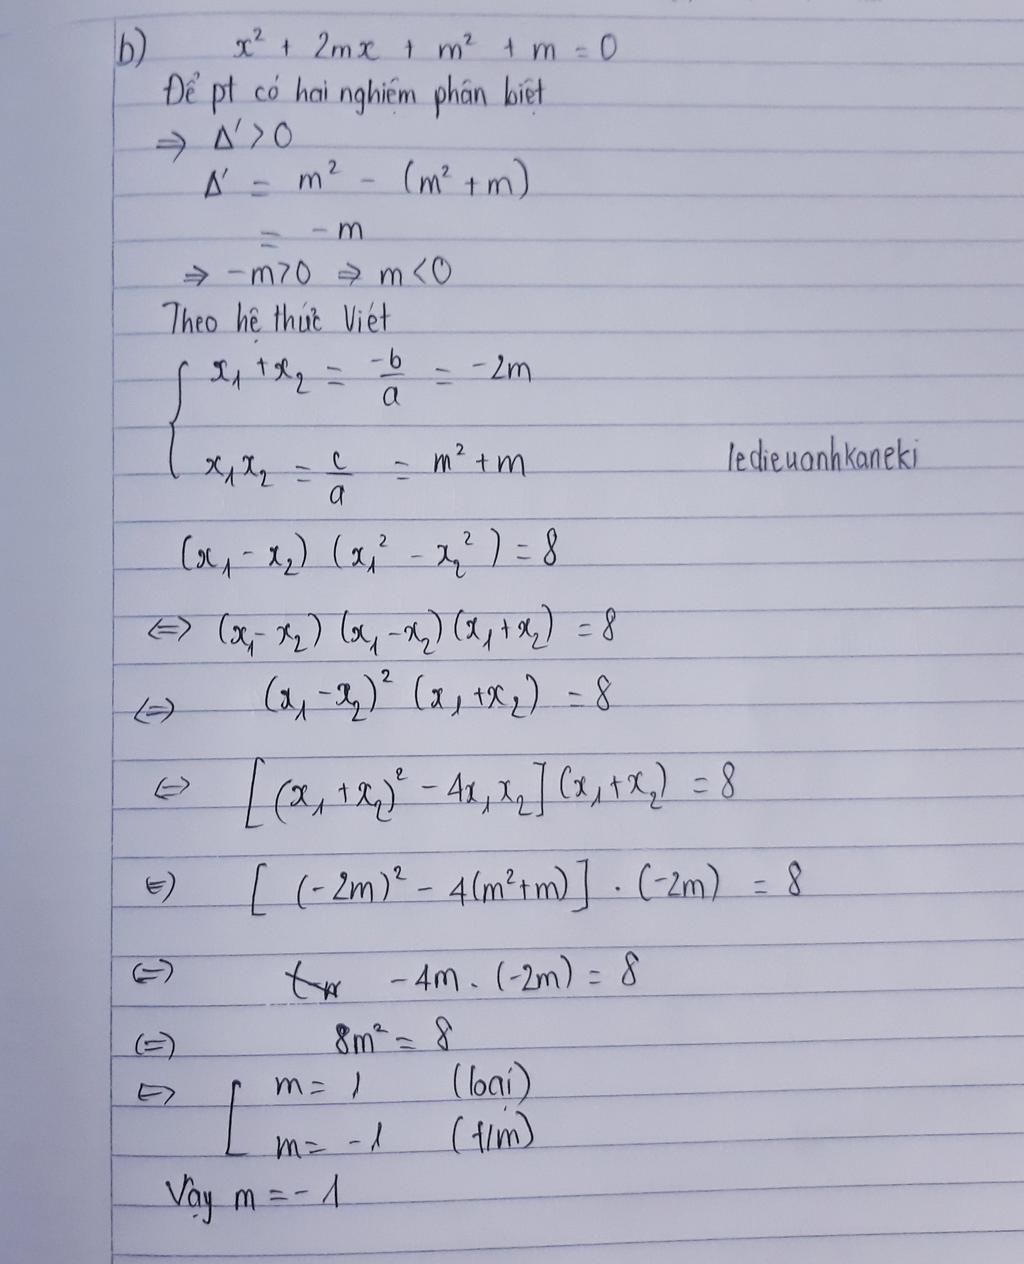 b) x² + 2mx + m² + m = 0
Để pt có hai nghiệm phân biệt
⇒ Δ' > 0
Δ' = m² - (m² + m)
= -m
⇒ -m > 0 ⇒ m < 0
Theo hệ thức Viét
{ x₁ + x₂ = -b/a = -2m
x₁x₂ = c/a = m² + m
ledieuanhkaneki
(x₁ - x₂) (x₁² - x₂²) = 8
⇔ (x₁ - x₂) (x₁ - x₂) (x₁ + x₂) = 8
⇔ (x₁ - x₂)² (x₁ + x₂) = 8
⇔ [(x₁ + x₂)² - 4x₁x₂] (x₁ + x₂) = 8
⇔ [(-2m)² - 4(m² + m)] . (-2m) = 8
⇔ -4m . (-2m) = 8
⇔ 8m² = 8
⇔ [ m = 1 (loại)
m = -1 (t/m)
Vậy m = -1